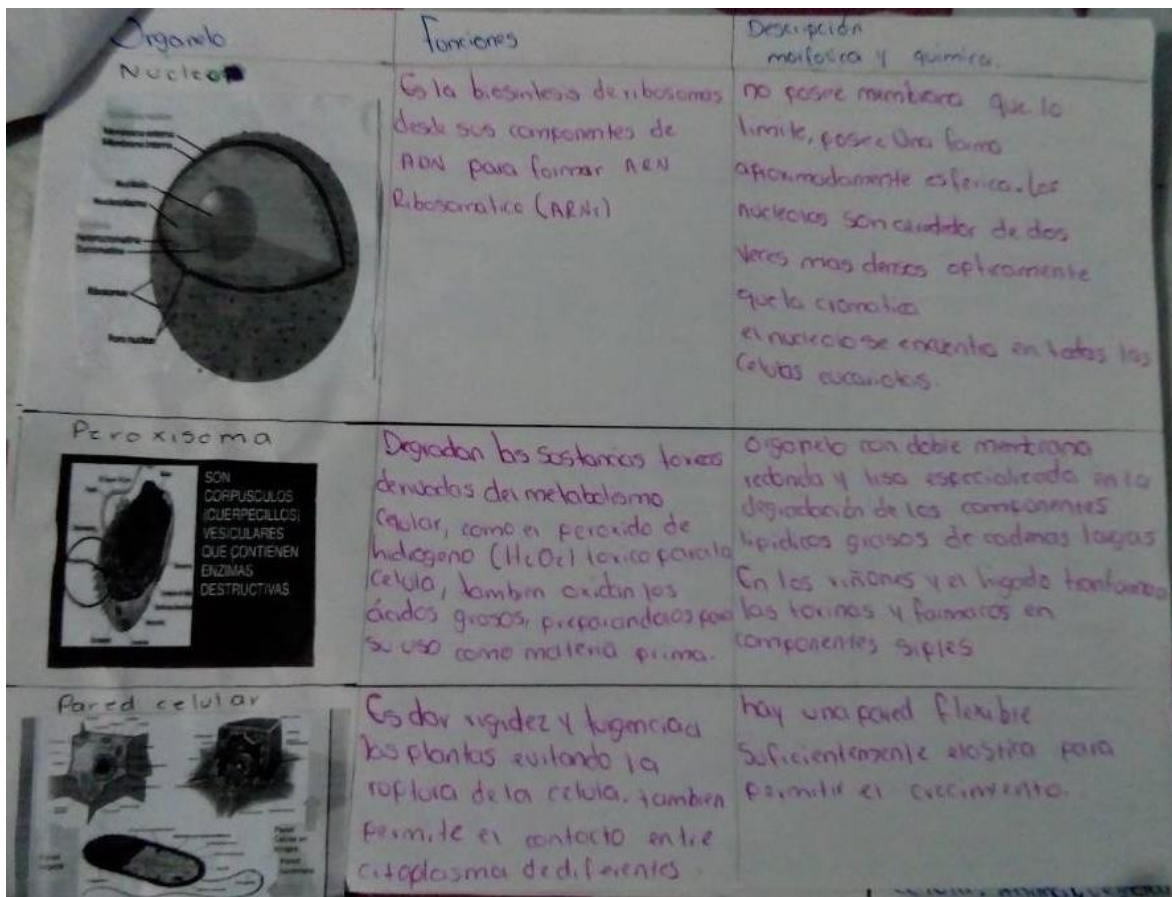 Organelo
Funciones
Descripción
morfologica y química.
Nucleo
Es la biosintesis de ribosomas
desde sus componentes de
ADN para formar ARN
Ribosomatico (ARNr)
no posee membrana que lo
limite, posee Una forma
aproximadamente esferica. Los
nucleolos son de dos
veces mas densos opticamente
que la cromatica
el nucleolo se encuentra en todas las
Celulas eucariotas.
Nucleolo
Ribosomas
Poro nuclear
Peroxisoma
SON
CORPUSCULOS
(CUERPECILLOS)
VESICULARES
QUE CONTIENEN
ENZIMAS
DESTRUCTIVAS
Degradan las Sustancias toxicas
derivadas del metabolismo
Celular, como el peroxido de
hidrogeno (H2O2) toxico para la
Celula, tambien oxidan los
ácidos grasos, preparandolos para
su uso como materia prima.
Organelo con doble membrana
redonda y lisa especializada en la
degradación de los componentes
lipidicos grasos de cadenas largas
En los riñones y el higado
las toxinas y farmacos en
componentes siples
Pared celular
Es dar rigidez y turgencia a
las plantas evitando la
roptura de la celula. tambien
permite el contacto entre
citoplasma de diferentes
hay una pared flexible
Suficientemente elastica para
permitir el crecimiento.